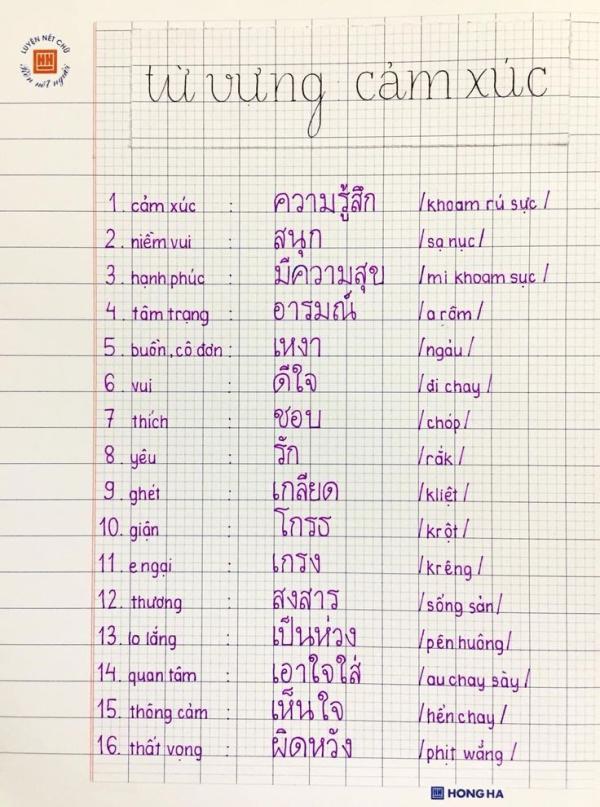 LUYỆN NÉT CHỮ
Rèn nết người
từ vựng cảm xúc
1. cảm xúc : ความรู้สึก /khoam rú sực/
2. niềm vui : สนุก /sạ nục/
3. hạnh phúc : มีความสุข /mi khoam sục/
4. tâm trạng : อารมณ์ /a rôm/
5. buồn, cô đơn : เหงา /ngảu/
6. vui : ดีใจ /đi chay/
7 thích : ชอบ /chóp/
8. yêu : รัก /rắk/
9. ghét : เกลียด /kliệt/
10. giận : โกรธ /krột/
11. e ngại : เกรง /krêng/
12. thương : สงสาร /sổng sản/
13. lo lắng : เป็นห่วง /pên huồng/
14. quan tâm : เอาใจใส่ /au chay sày/
15. thông cảm : เห็นใจ /hển chay/
16. thất vọng : ผิดหวัง /phịt wẳng/
HH HONG HA